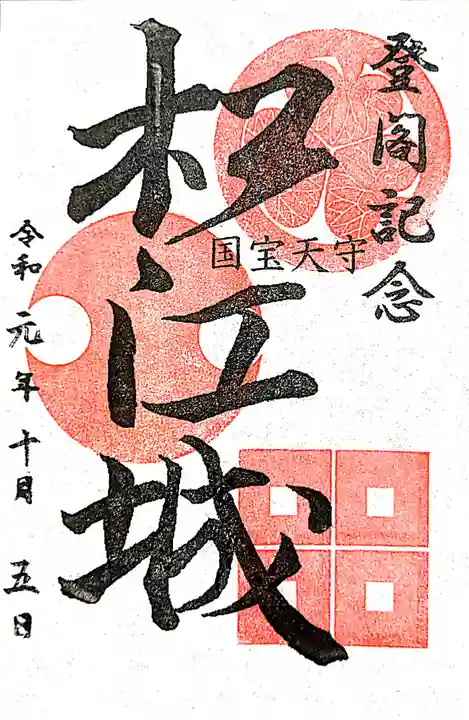 登閣記念
国宝天守
松江城
令和元年十月五日